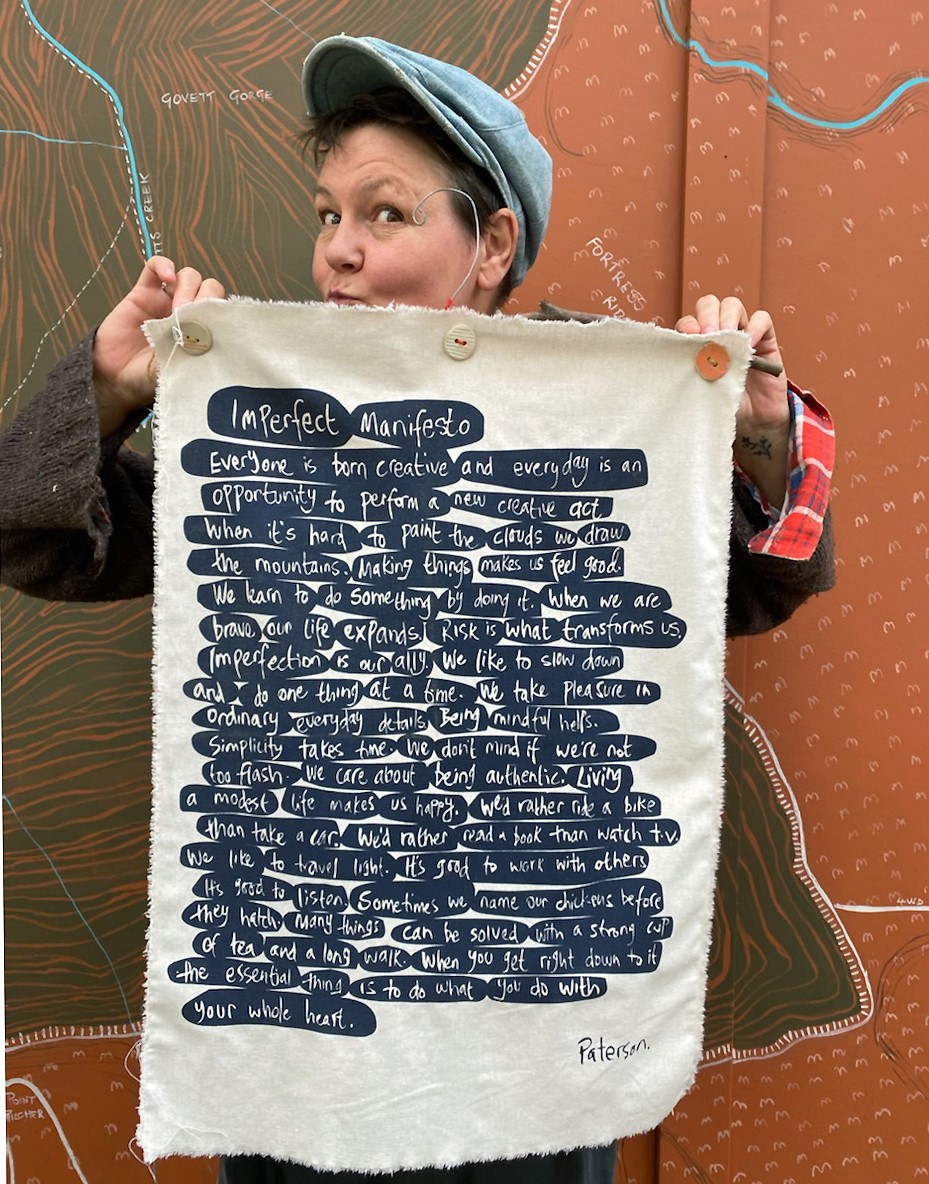 GOVETT GORGE
CREEK
FORTRESS
Imperfect Manifesto
Everyone is born creative and everyday is an
opportunity to perform a new creative act.
When it's hard to paint the clouds we draw
the mountains. Making things makes us feel good.
We learn to do something by doing it. When we are
brave our life expands. Risk is what transforms us.
Imperfection is our ally. We like to slow down
and do one thing at a time. We take pleasure in
ordinary everyday details. Being mindful helps.
Simplicity takes time. We don't mind if we're not
too flash. We care about being authentic. Living
a modest life makes us happy. We'd rather ride a bike
than take a car. We'd rather read a book than watch t.v.
We like to travel light. It's good to work with others
It's good to listen. Sometimes we name our chickens before
they hatch. Many things can be solved with a strong cup
of tea and a long walk. When you get right down to it
the essential thing is to do what you do with
your whole heart.
Paterson.
4WD
POINT
PILCHER